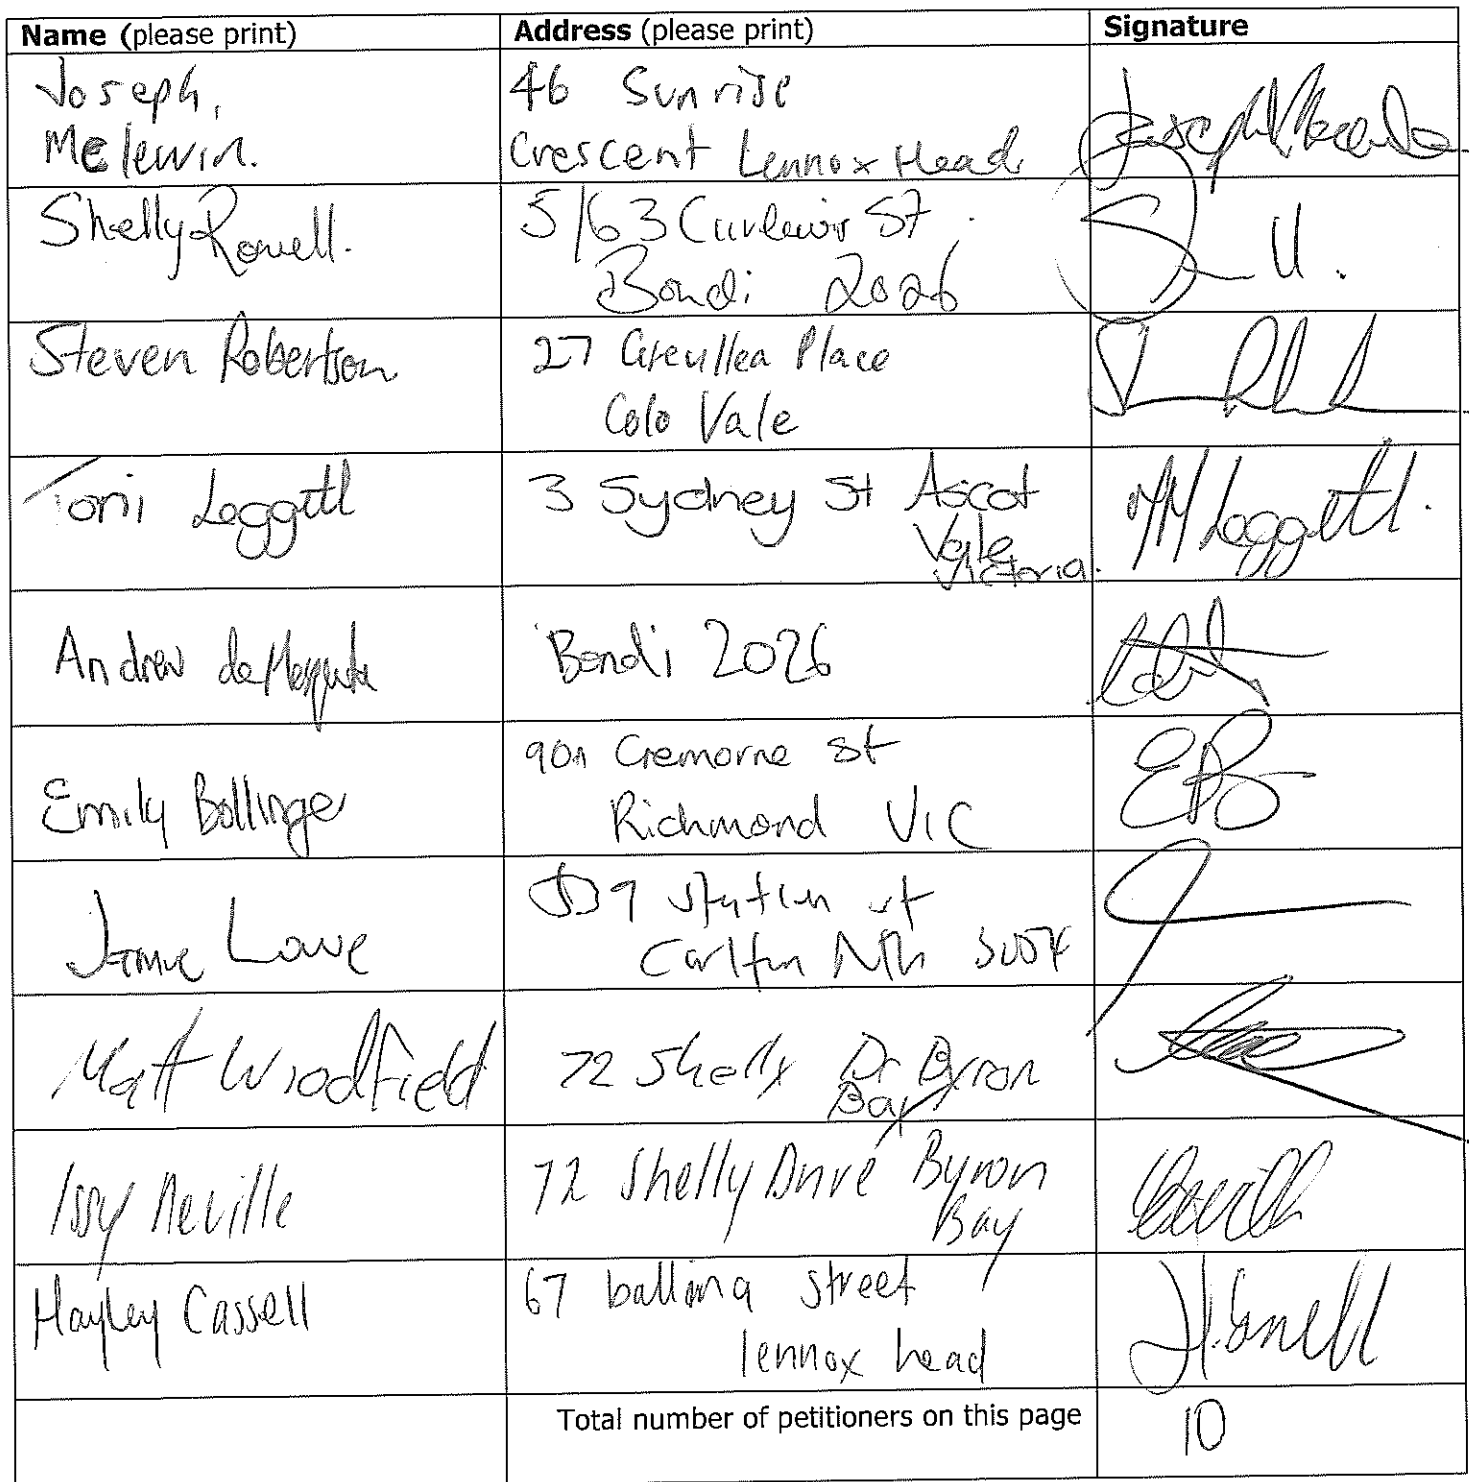 Name (please print) Address (please print) Signature
Joseph, 46 Sunrise
Mclewin. Crescent Lennox Head
Shelly Rowell. 5/63 Curlewis St.
Bondi 2026
Steven Robertson 27 Grevillea Place
Colo Vale
Toni Leggett 3 Sydney St Ascot
Vale
Victoria.
Andrew Bondi 2026
901 Cremorne st
Emily Bollinger Richmond VIC
station st
Jamie Lowe Carlton Nth 3054
Matt Woodfield 72 Shelly Dr Byron
Bay
Issy Neville 72 Shelly Drive Byron
Bay
Hayley Cassell 67 ballina street
lennox head
Total number of petitioners on this page 10